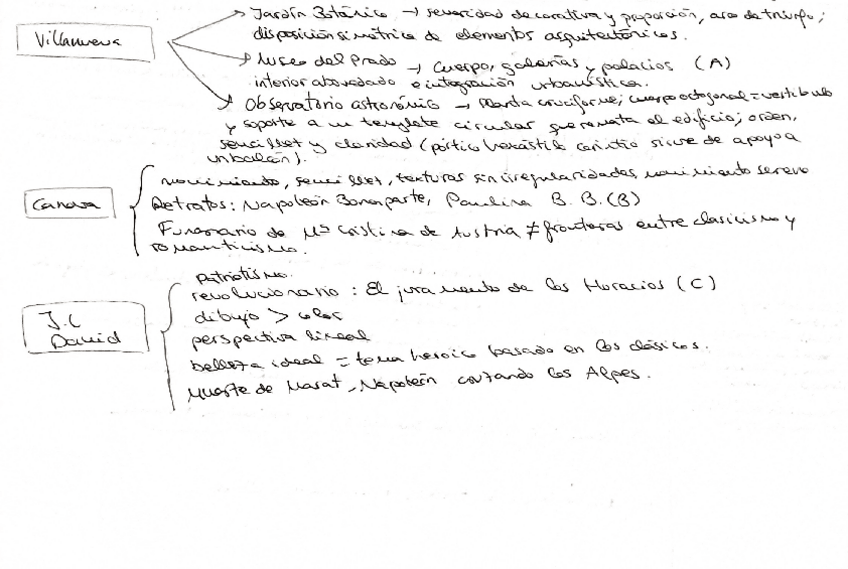 Villanueva
Jardín Botánico → severidad decorativa y proporción, arco de triunfo;
disposición simétrica de elementos arquitectónicos.
Museo del Prado → cuerpo, galerías y palacios (A)
interior abovedado e integración urbanística.
Observatorio astronómico → Planta cruciforme; cuerpo octogonal = vestíbulo
y soporte a un templete circular que remata el edificio; orden,
sencillez y claridad (pórtico hexástilo corintio sirve de apoyo a
un balcón).
Canova
movimiento, sencillez, texturas sin irregularidades, movimiento sereno
Retratos: Napoleón Bonaparte, Paulina B. B. (B)
Funerario de Mª Cristina de Austria ≠ fronteras entre clasicismo y
romanticismo.
J.L
David
Patriotismo.
revolucionario : El juramento de los Horacios (C)
dibujo > color
perspectiva lineal
belleza ideal = tema heroico basado en los clásicos.
Muerte de Marat, Napoleón cruzando los Alpes.